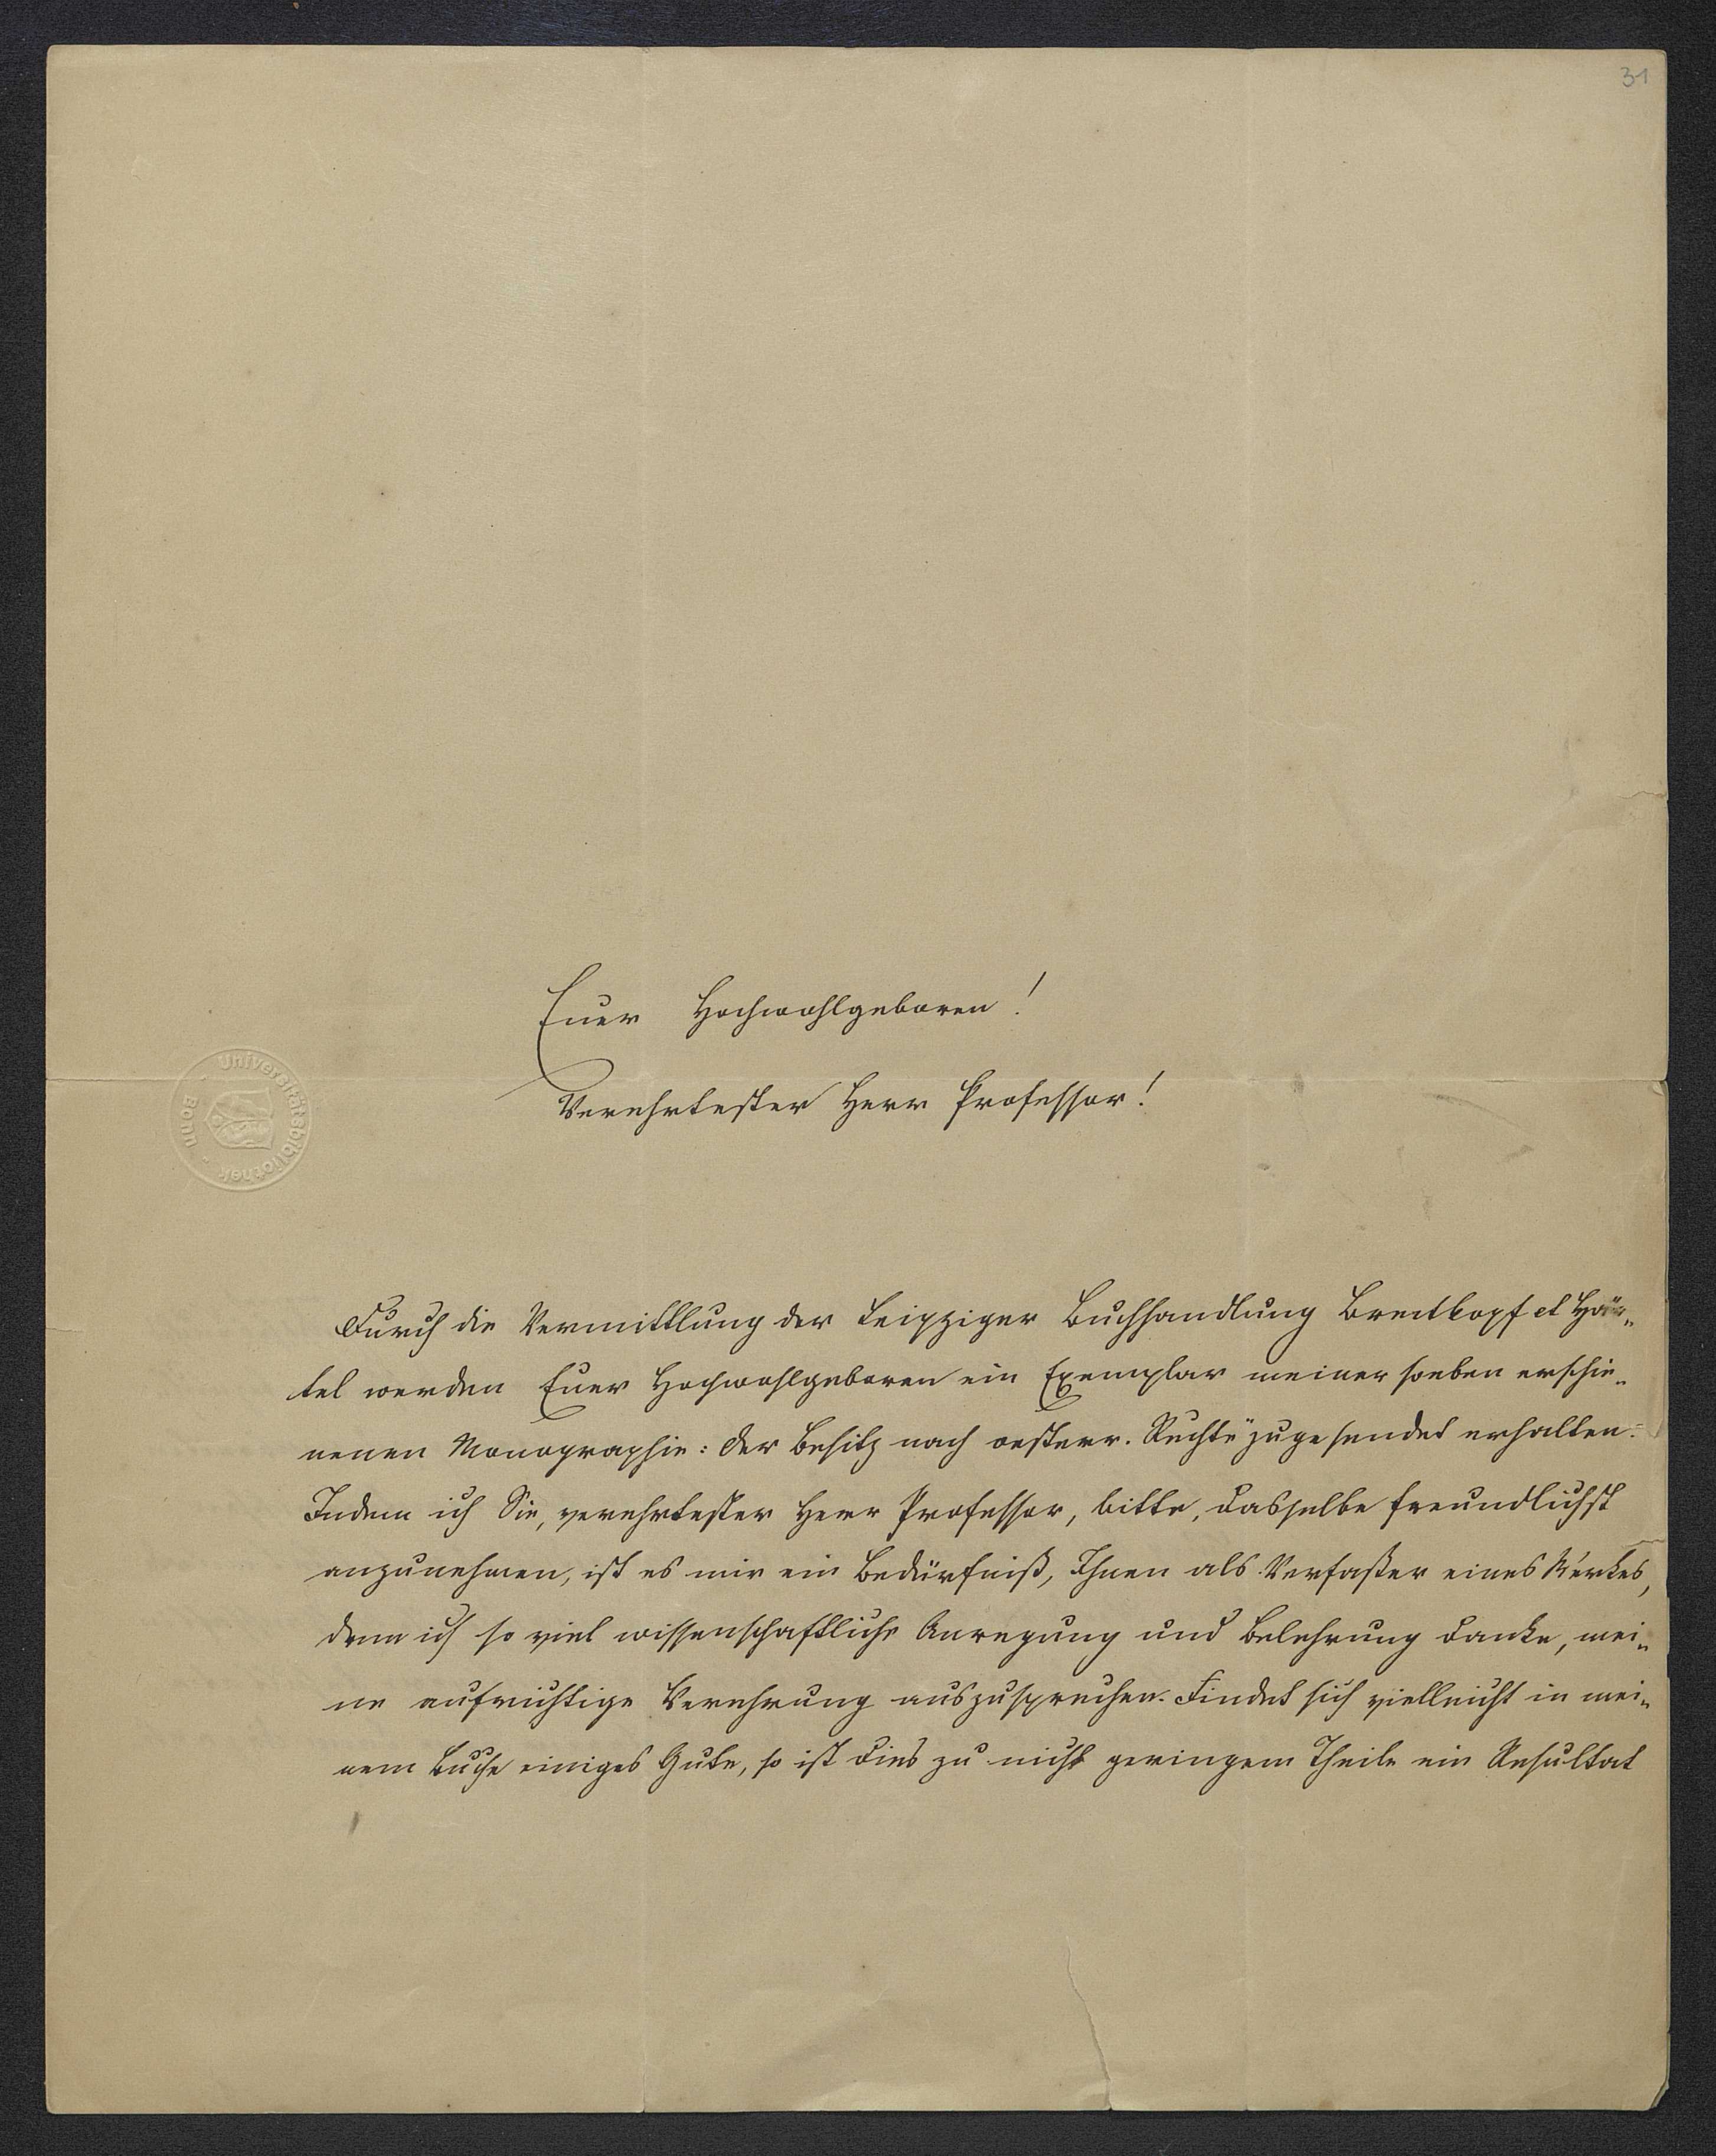 31
Euer Hochwohlgeboren!
Verehrtester Herr Professor!
Universitätsbibliothek Bonn
Durch die Vermittlung der Leipziger Buchhandlung Breitkopf et Här„
tel werden Euer Hochwohlgeboren ein Exemplar meiner soeben erschie„
nenen Monographie: der Besitz nach oesterr. Rechte" zugesendet erhalten.
Indem ich Sie, verehrtester Herr Professor, bitte, dasselbe freundlichst
anzunehmen, ist es mir ein Bedürfniß, Ihnen als Verfaßer eines Werkes,
dem ich so viel wissenschaftliche Anregung und Belehrung danke, mei„
ne aufrichtige Verehrung auszusprechen. Findet sich vielleicht in mei„
nem Buche einiges Gute, so ist dies zu nicht geringem Theile ein Resultat